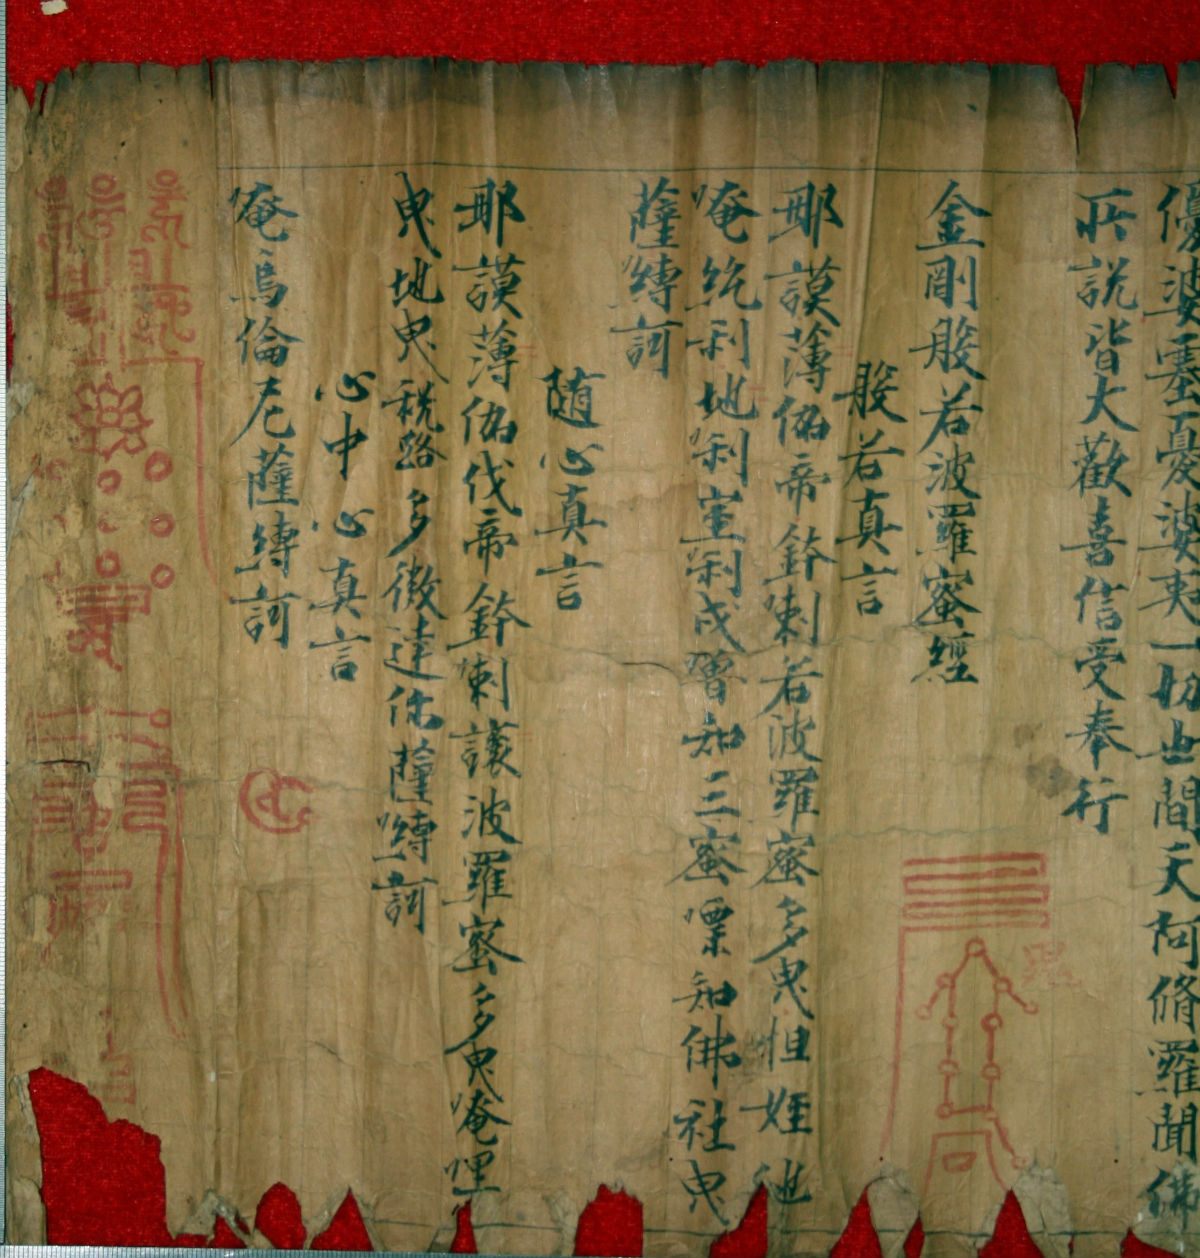 優婆塞優婆夷一切世間天阿脩羅聞佛
所說皆大歡喜信受奉行
金剛般若波羅蜜經
般若真言
那謨薄伽帝鉢喇若波羅蜜多曳怛姪他
唵紇利地利室利戍嚕知三蜜栗知佛社曳
薩縛訶
隨心真言
那謨薄伽伐帝鉢喇讓波羅蜜多曳唵哩
曳地曳稅路多微達你薩嚩訶
心中心真言
唵烏倫尼薩縛訶